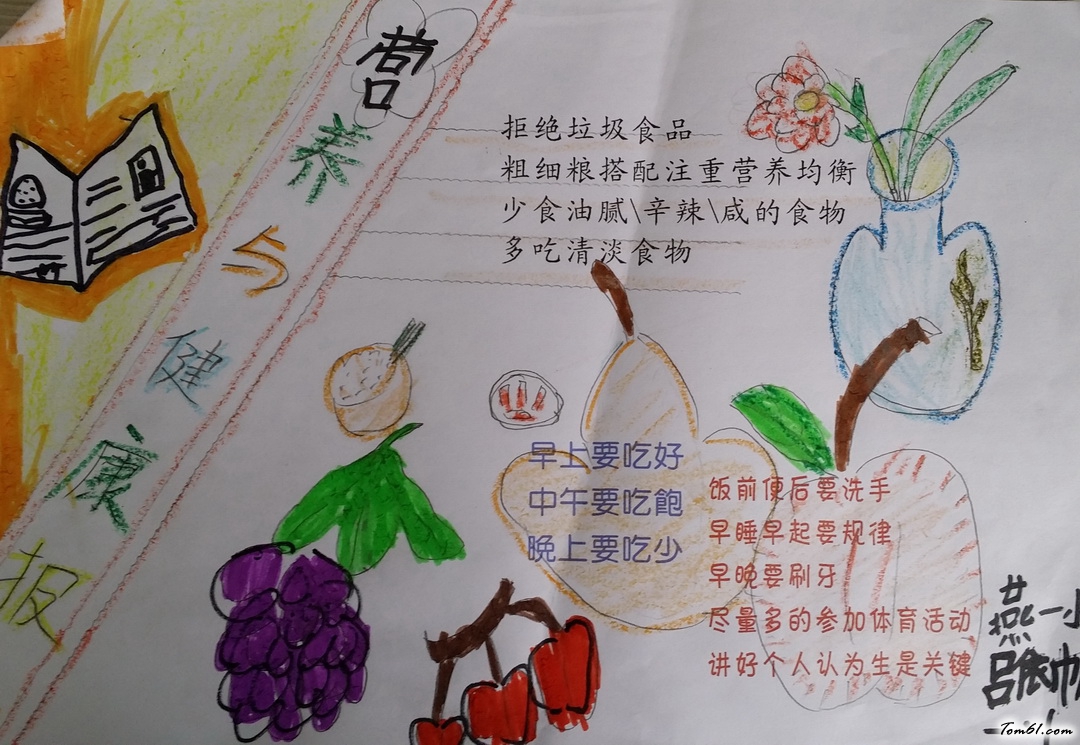 营养与健康报
拒绝垃圾食品
粗细粮搭配注重营养均衡
少食油腻\辛辣\咸的食物
多吃清淡食物
早上要吃好
中午要吃飽
晚上要吃少
饭前便后要洗手
早睡早起要规律
早晚要刷牙
尽量多的参加体育活动
讲好个人认为生是关键
燕一小
Tom61.com